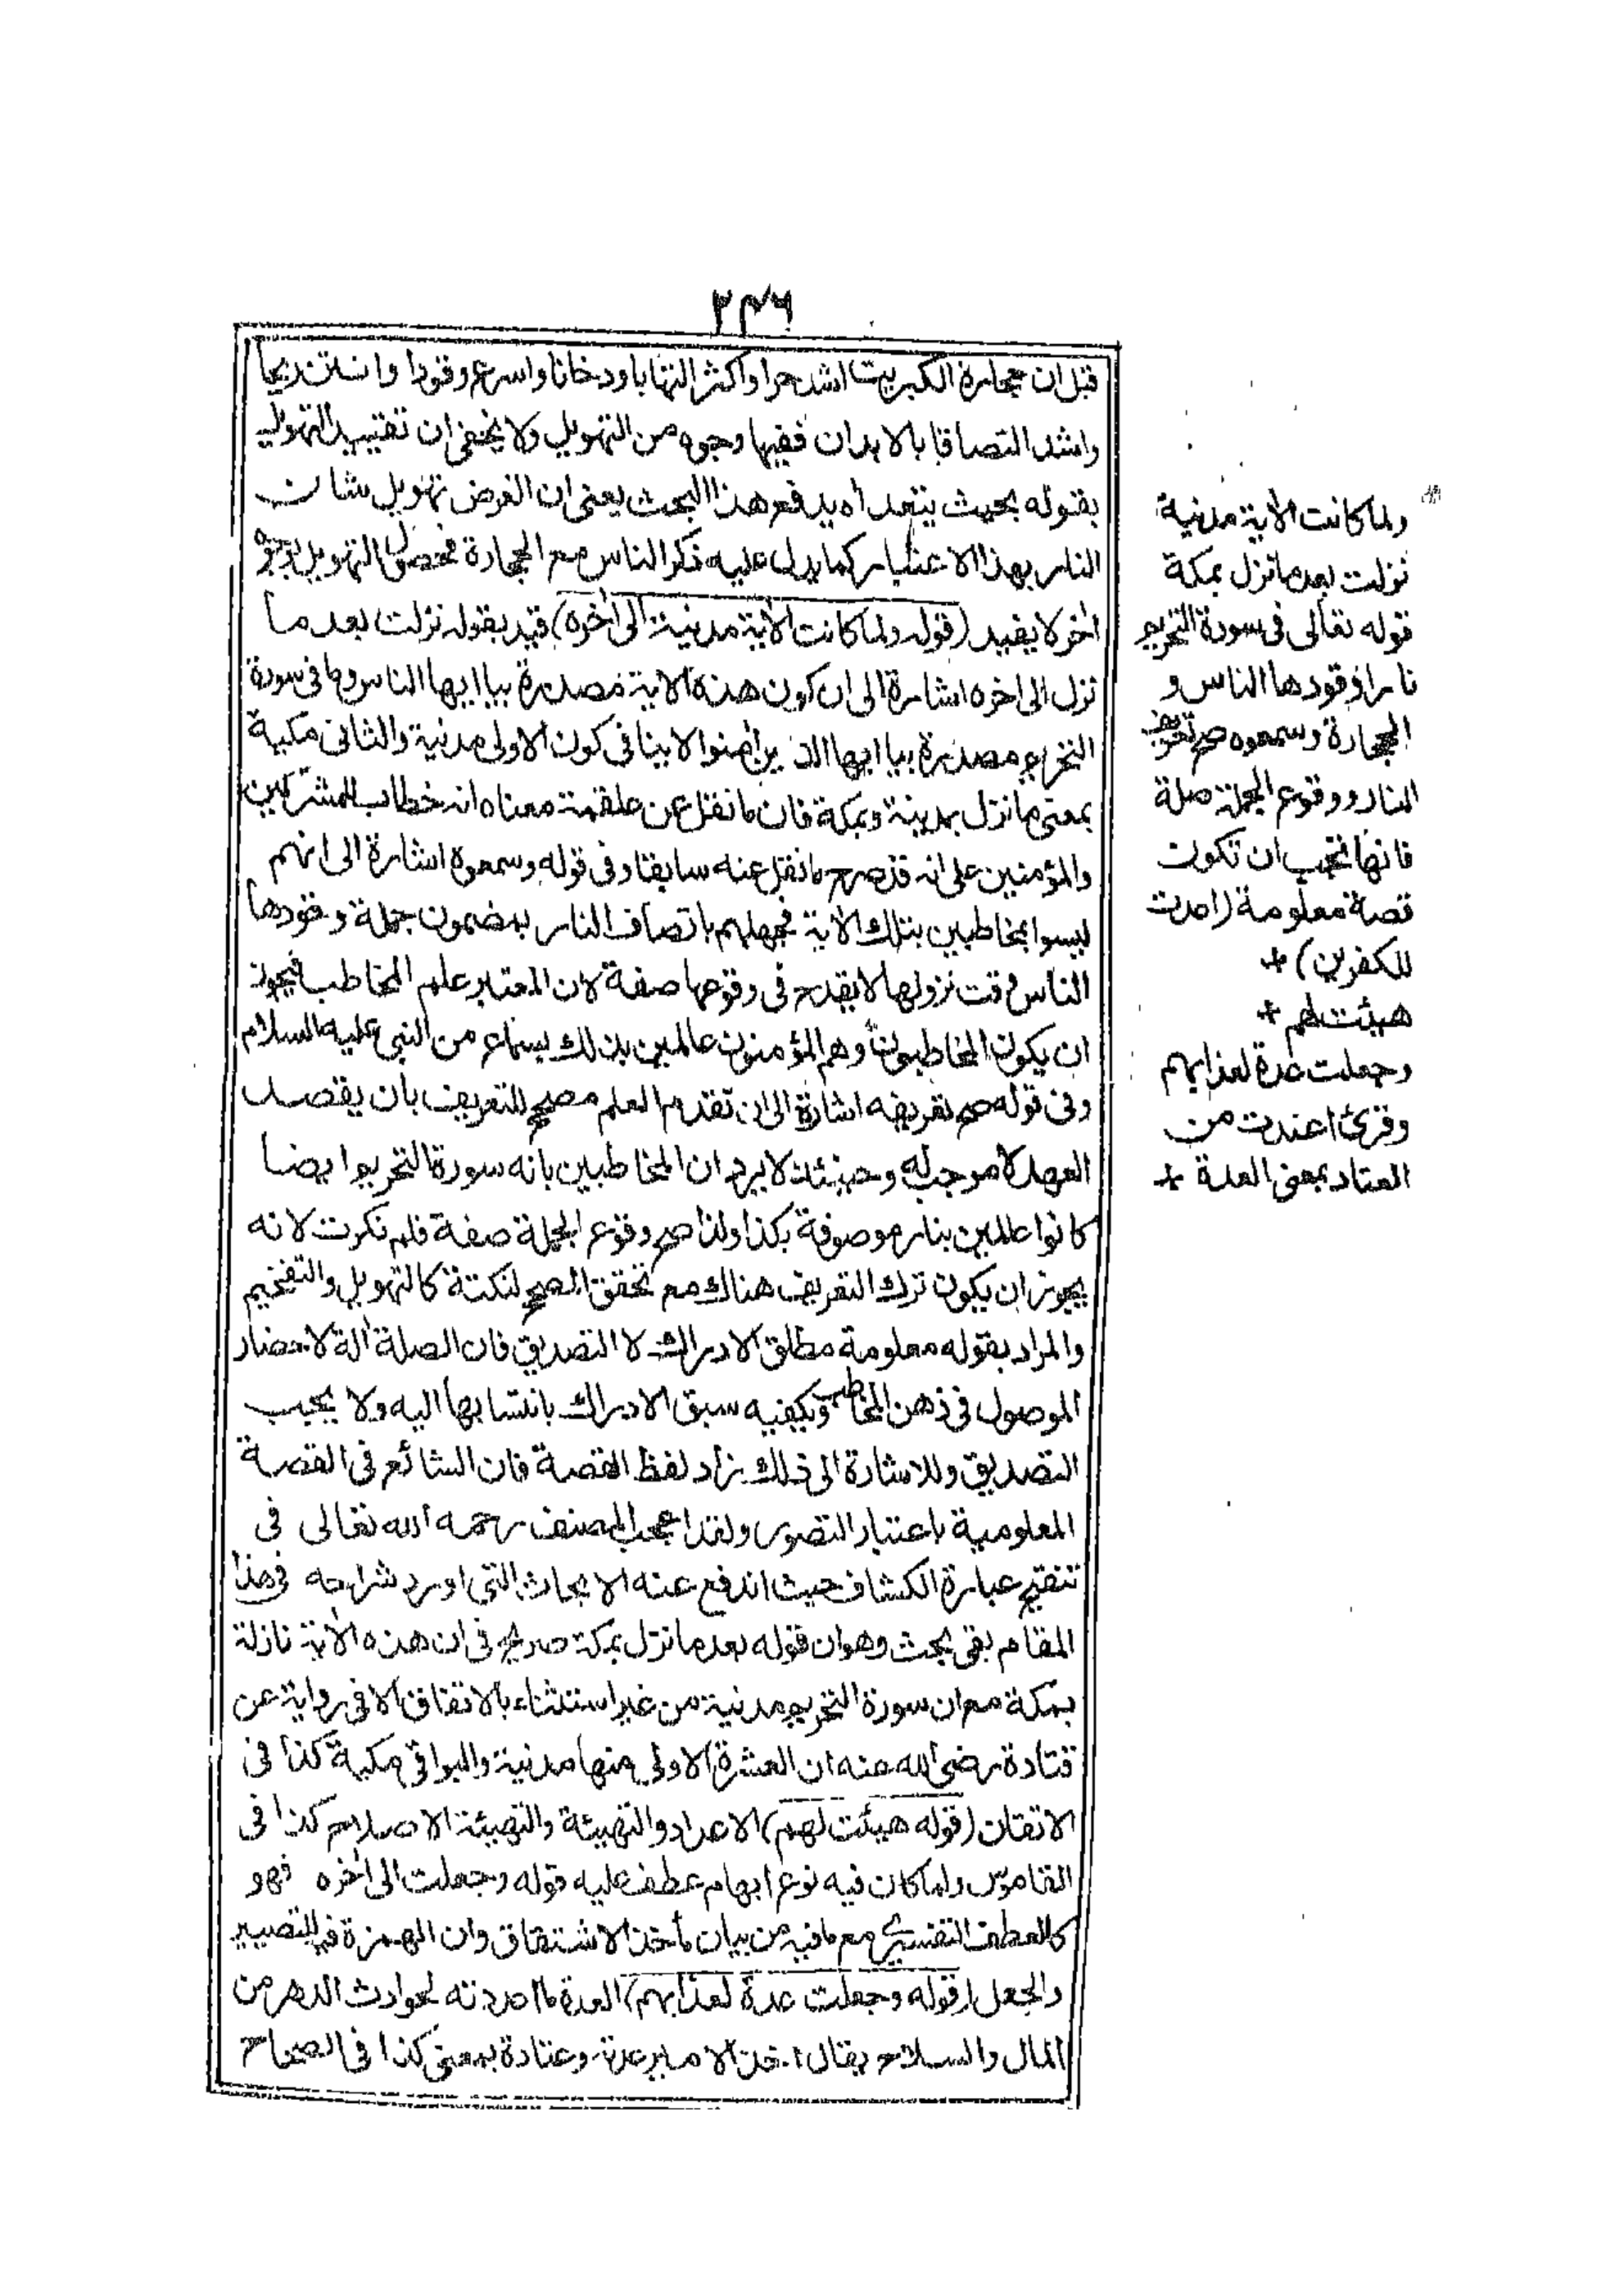 ٢٣٦
قبل ان حجارة الكبريت اشد حرا واكثر التهابا ودخانا واسرع وقودا وانتن ريحا
واشد التصاقا بالابدان ففيها وجوه من التهويل ولا يخفى ان تقييد التهويل
بقوله بحيث يتقد اه يدفع هذا البحث يعنى ان الغرض تهويل شان
النار بهذا الاعتبار كما يدل عليه ذكر الناس مع الحجارة فحصول التهويل بوجوه
اخر لا يفيد (قوله ولما كانت الآية مدنية الى اخره) قيد بقوله نزلت بعد ما
نزل الى اخره اشارة الى ان كون هذه الاية مصدرة بيا ايها الناس وما فى سورة
التحريم مصدرة بيا ايها الذين امنوا لا ينافى كون الاولى مدنية والثانى مكية
بمعنى ما نزل بمدينة وبمكة فان ما نقل عن علقمة معناه انه خطاب للمشركين
والمؤمنين على انه قد صرح ما نقل عنه سابقا وفى قوله وسمعوه اشارة الى انهم
ليسوا بمخاطبين بتلك الآية فجهلهم باتصاف النار بمضمون جملة وقودها
الناس وقت نزولها لا يقدح فى وقوعها صفة لان المعتبر علم المخاطب فيجوز
ان يكون المخاطبون وهم المؤمنون عالمين بذلك بسماع من النبى عليه السلام
وفى قوله صح تعريفه اشارة الى ان تقدم العلم مصحح للتعريف بان يقصد
العهد لا موجب له وحينئذ لا يرد ان المخاطبين بانه سورة التحريم ايضا
كانوا عالمين بنار موصوفة بكذا ولذا صح وقوع الجملة صفة فلم نكرت لانه
يجوز ان يكون ترك التعريف هناك مع تحقق المصحح لنكتة كالتهويل والتفخيم
والمراد بقوله معلومة مطلق الادراك لا التصديق فان الصلة الة لاحضار
الموصول فى ذهن المخاطب ويكفيه سبق الادراك بانتسابها اليه ولا يجب
التصديق وللاشارة الى ذلك زاد لفظ القصة فان الشائع فى القصة
المعلومية باعتبار التصور ولقد اعجب المصنف رحمه الله تعالى فى
تنقيح عبارة الكشاف حيث اندفع عنه الابحاث التى اورد شراحه فى هذا
المقام بقى بحث وهو ان قوله بعد ما نزل بمكة صريح فى ان هذه الآية نازلة
بمكة مع ان سورة التحريم مدنية من غير استثناء بالاتفاق الا فى رواية عن
قتادة رضى الله عنه ان العشرة الاولى منها مدنية والبواقى مكية كذا فى
الاتقان (قوله هيئت لهم) الاعداد والتهيئة والتهيئة الاصلاح كذا فى
القاموس ولما كان فيه نوع ابهام عطف عليه قوله وجعلت الى اخره فهو
كالعطف التفسيرى مع ما فيه من بيان مأخذ الاشتقاق وان الهمزة فيه للتصيير
والجعل (قوله وجعلت عدة لعذابهم) العدة ما اعددته لحوادث الدهر من
المال والسلاح يقال اخذ الامير عدته وعتادة بمعنى كذا فى الصحاح
ولما كانت الاية مدنية
نزلت بعد ما نزل بمكة
قوله تعالى فى سورة التحريم
نارا وقودها الناس و
الحجارة وسمعوه صح تعريف
النار ووقوع الجملة صلة
فانها تجب ان تكون
قصة معلومة (اعدت
للكفرين) +
هيئت لهم +
وجعلت عدة لعذابهم
وقرئ اعتدت من
العتاد بمعنى العدة +